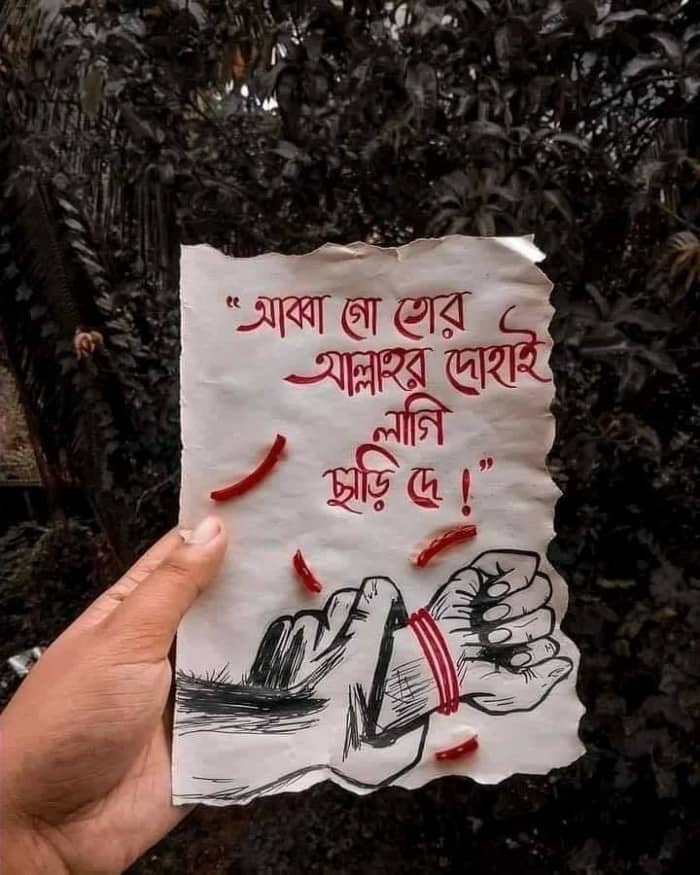 “আব্বা গো তোর
আল্লাহর দোহাই
লাগি
ছাড়ি দে !”